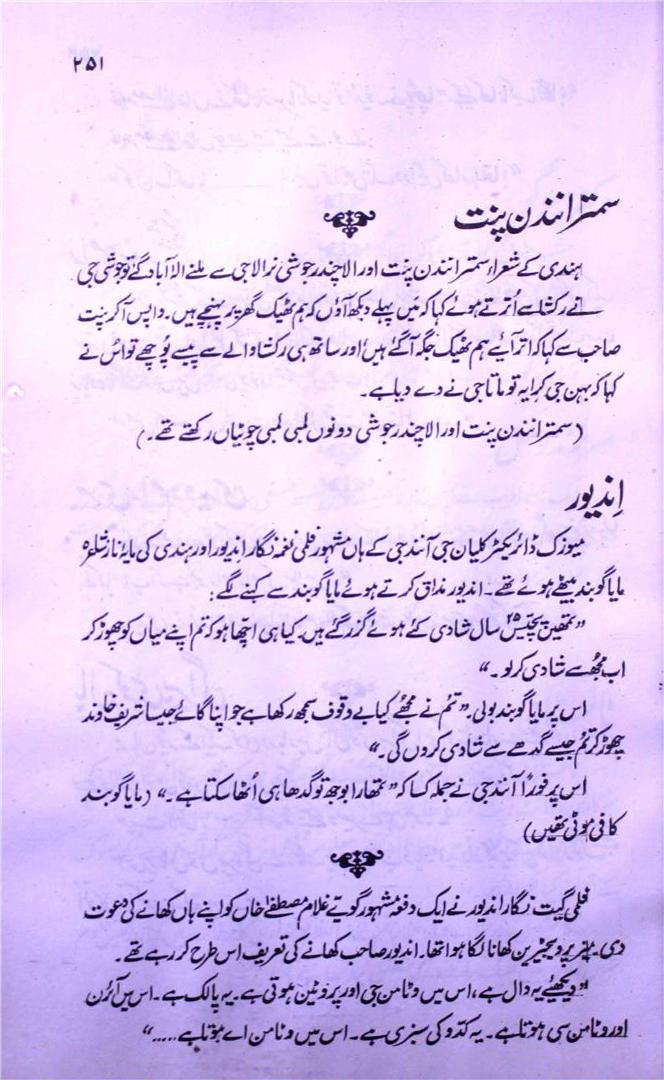 ۲۵۱
سمترانندن پنت
ہندی کے شعراء سمترانندن پنت اور الاچندر جوشی نرالا جی سے ملنے الٰہ آباد گئے تو جوشی جی
نے رکشا سے اترتے ہوئے کہا کہ میں پہلے دیکھ آؤں کہ ہم ٹھیک گھر پر پہنچے ہیں۔ واپس آ کر پنت
صاحب سے کہا کہ اتر آیئے ہم ٹھیک جگہ آ گئے ہیں اور ساتھ ہی رکشا والے سے پیسے پوچھے تو اس نے
کہا کہ بہن جی کرایہ تو ماتا جی نے دے دیا ہے۔
(سمترانندن پنت اور الاچندر جوشی دونوں لمبی لمبی چوٹیاں رکھتے تھے۔)
اِندیور
میوزک ڈائریکٹر کلیان جی آنند جی کے ہاں مشہور فلمی نغمہ نگار اندیور اور ہندی کی مایۂ ناز شاعرہ
مایا گوبند بیٹھے ہوئے تھے۔ اندیور مذاق کرتے ہوئے مایا گوبند سے کہنے لگے:
”تمھیں پچیس ۲۵ سال شادی کے ہوئے گزر گئے ہیں۔ کیا ہی اچھا ہو کہ تم اپنے میاں کو چھوڑ کر
اب مجھ سے شادی کر لو۔“
اس پر مایا گوبند بولی۔ ”تم نے مجھے کیا بے وقوف سمجھ رکھا ہے جو اپنا گائے جیسا شریف خاوند
چھوڑ کر تم جیسے گدھے سے شادی کروں گی۔“
اس پر فوراً آنند جی نے جملہ کسا کہ ”تمھارا بوجھ تو گدھا ہی اُٹھا سکتا ہے۔“ (مایا گوبند
کافی موٹی تھیں)
فلمی گیت نگار اندیور نے ایک دفعہ مشہور گویے غلام مصطفےٰ خاں کو اپنے ہاں کھانے کی دعوت
دی۔ میز پر ویجیٹیرین کھانا لگا ہوا تھا۔ اندیور صاحب کھانے کی تعریف اس طرح کر رہے تھے۔
”دیکھئے یہ دال ہے، اس میں وٹامن جی اور پروٹین ہوتی ہے۔ یہ پالک ہے۔ اس میں آئرن
اور وٹامن سی ہوتا ہے۔ یہ کدّو کی سبزی ہے۔ اس میں وٹامن اے ہوتا ہے.....“